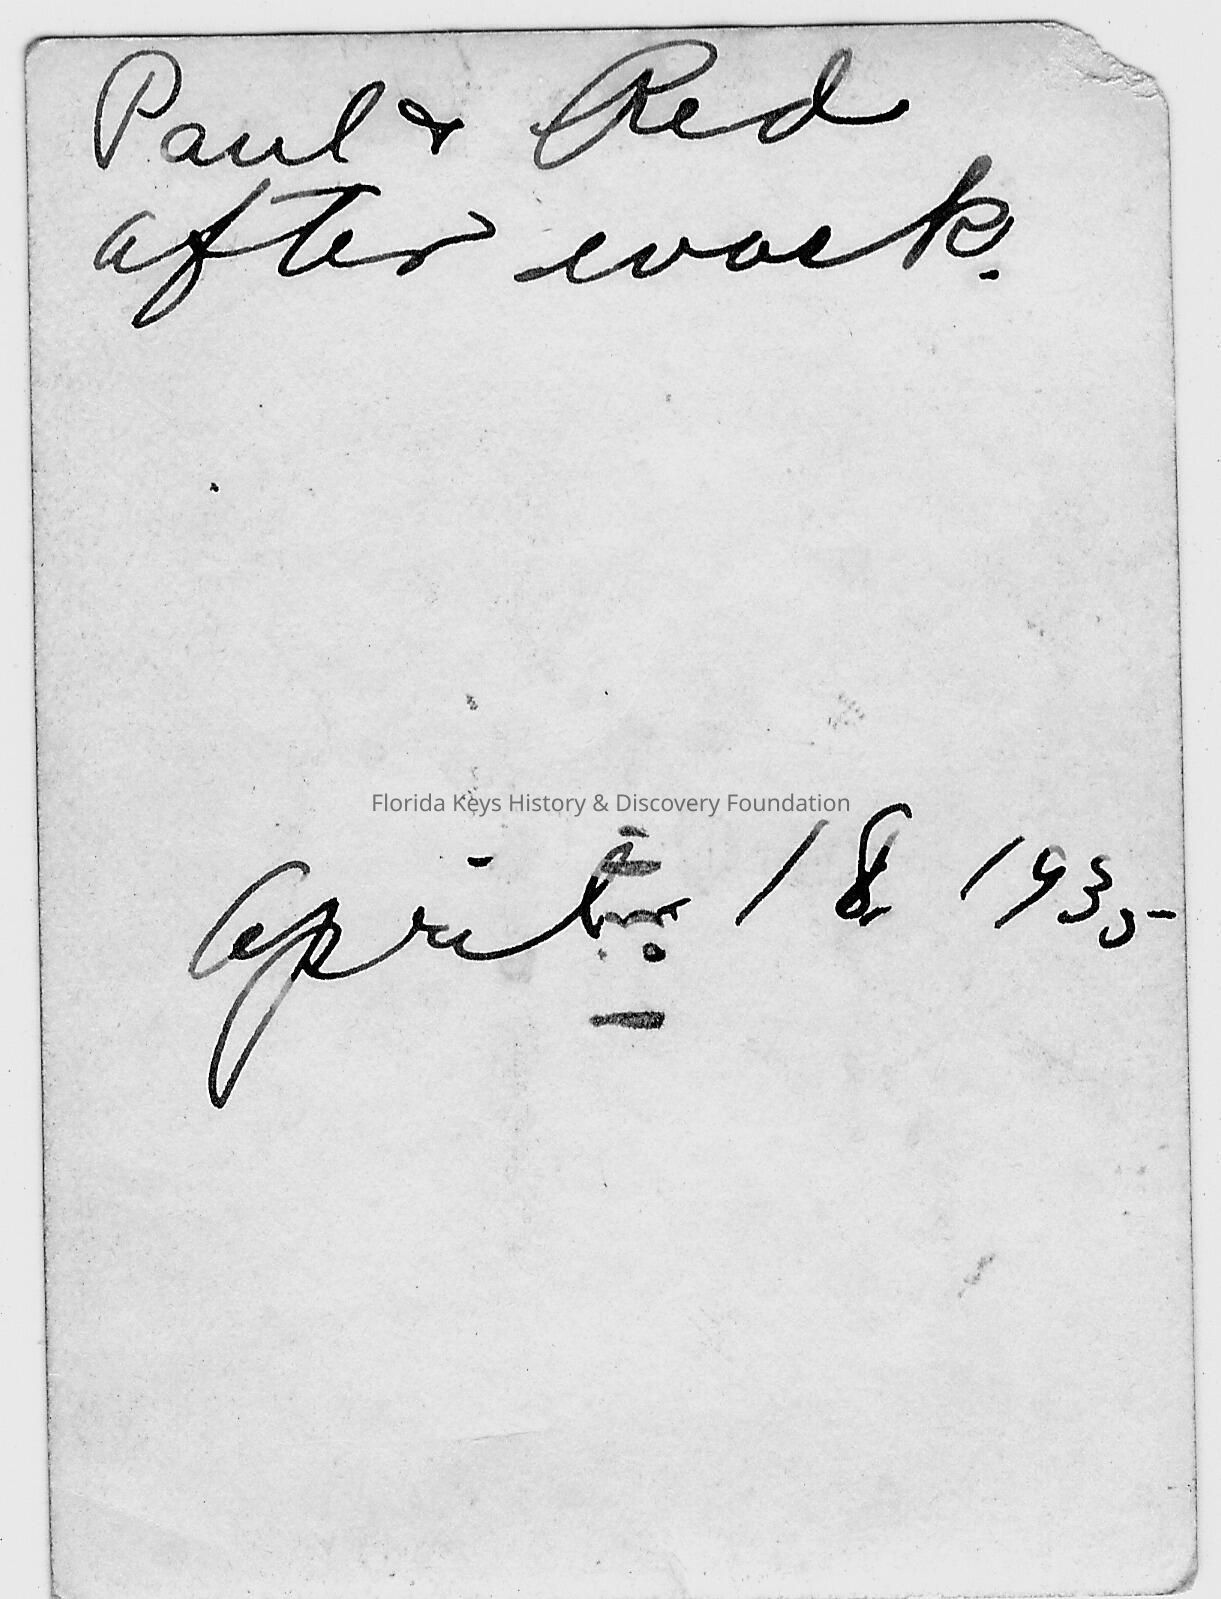 Paul & Red
after work.
Florida Keys History & Discovery Foundation
April 18 1935